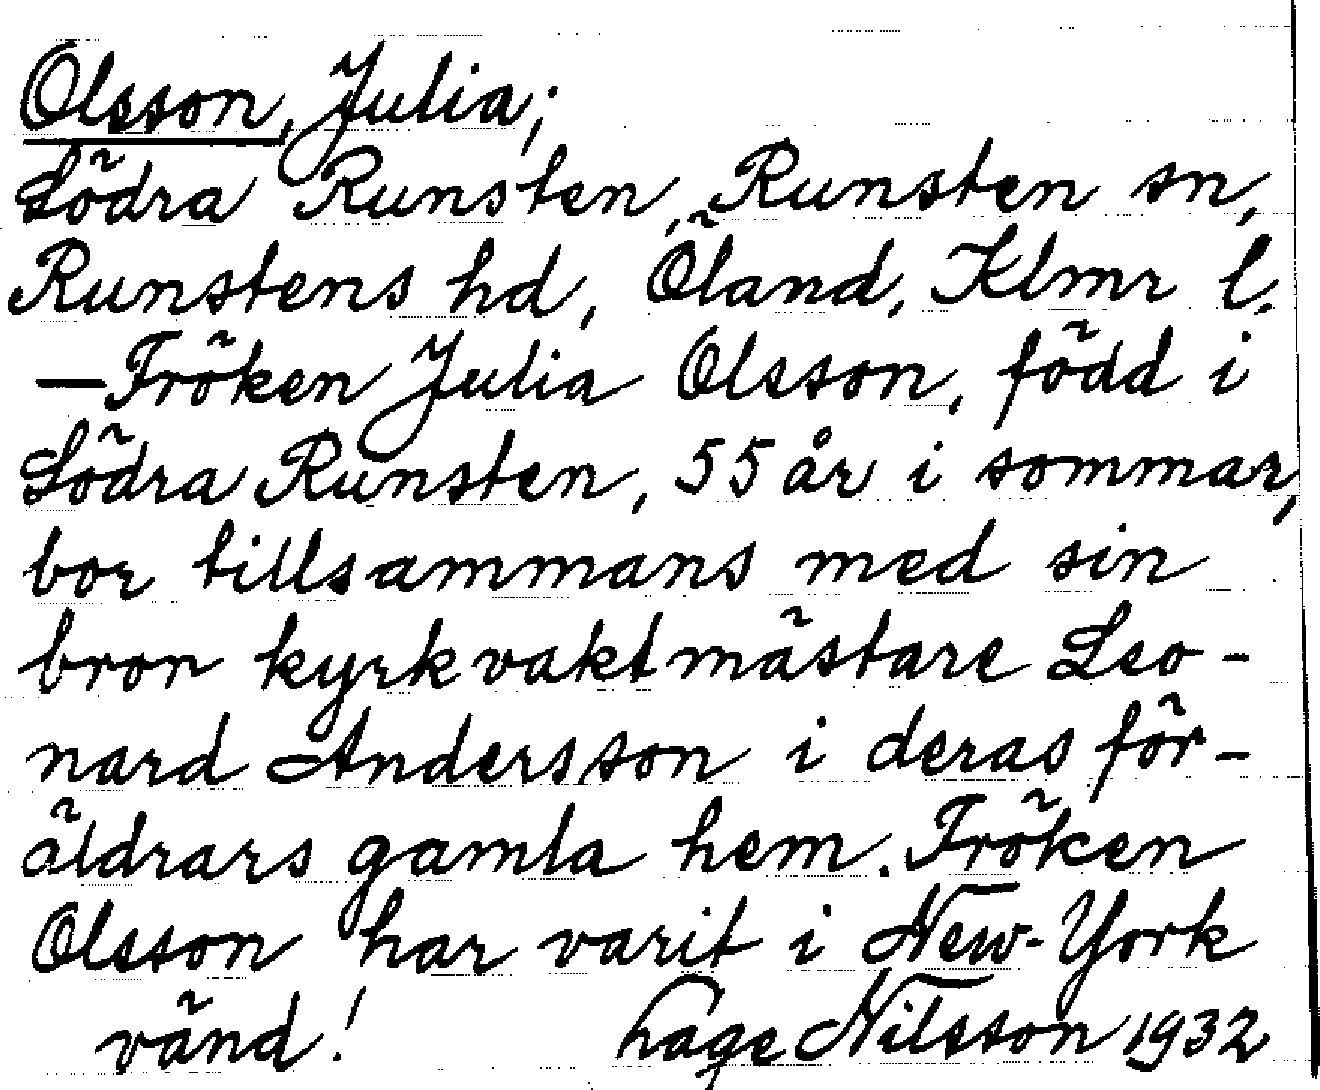 Olsson, Julia;
Södra Runsten, Runsten sn,
Runstens hd, Öland, Klmr l.
—Fröken Julia Olsson, född i
Södra Runsten, 55 år i sommar,
bor tillsammans med sin
bron kyrkvaktmästare Leo-
nard Andersson i deras för-
äldrars gamla hem. Fröken
Olsson har varit i New-York
vänd! hage Nilsson 1932